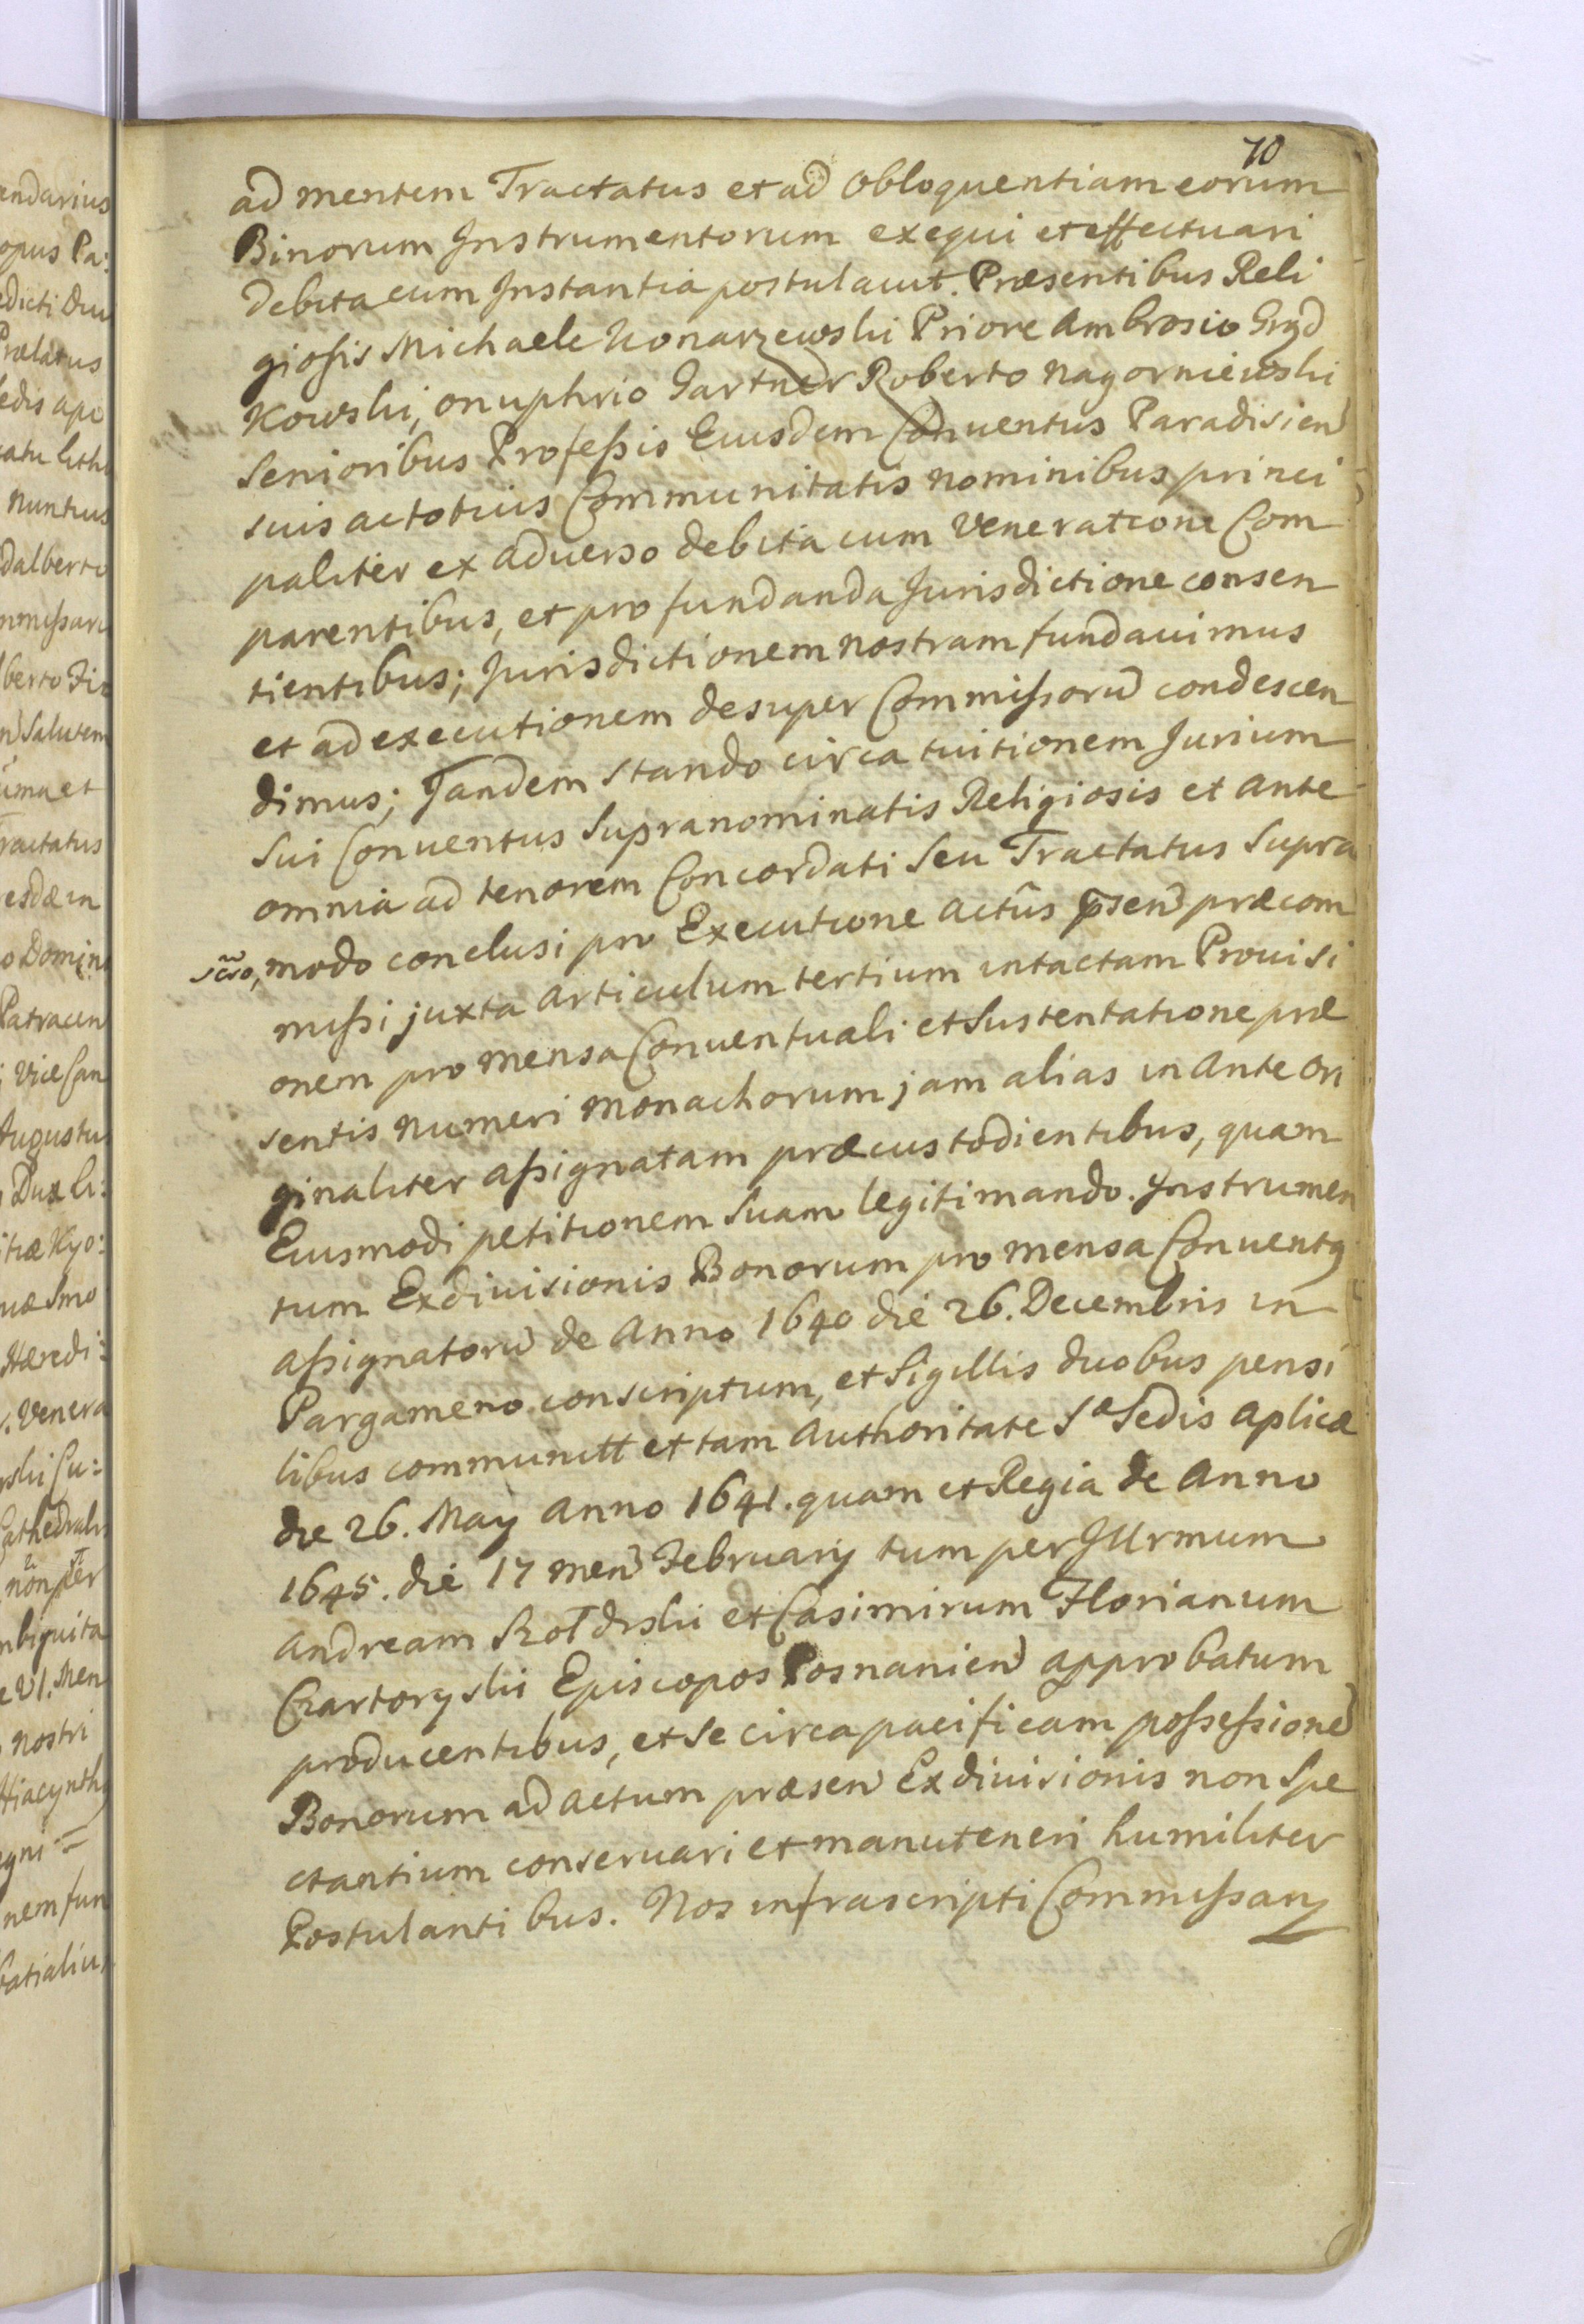 70
ad mentem Tractatus et ad Obloquentiam eorum
Binorum Instrumentorum exequi et effectuari
debita cum Instantia postulavit. Præsentibus Reli
giosis Michaele Konarzewski Priore Ambrosio Gryd
Kowski, Onuphrio Gartner Roberto Nagorniewski
Senioribus Professis Eiusdem Conventus Paradisien
suis ac totius Communitatis nominibus princi
paliter ex adverso debita cum Veneratione Com
parentibus, et pro fundanda Jurisdictione consen
tientibus; Jurisdictionem nostram fundavimus
et ad executionem desuper Commissorũ condescen
dimus; Tandem stando circa tuitionem Jurium
Sui Conventus Supranominatis Religiosis et ante
omnia ad tenorem Concordati Seu Tractatus Supra
modo conclusi pro Executione actûs p̃sen præcom
missi juxta Articulum tertium intactam Provisi
onem pro Mensa Conventuali et Sustentatione præ
sentis Numeri Monachorum jam alias in ante Ori
ginaliter assignatam præcustodientibus, quam
Eiusmodi petitionem Suam legitimando. Instrumen
tum Exdivisionis Bonorum pro Mensa Conventq
assignatorũ de Anno 1640 die 26. Decembris in
Pargameno conscriptum, et Sigillis duobus pensi
libus communitt et tam Authoritate Sæ Sedis Aplicæ
die 26. May Anno 1641. quam et Regia de Anno
1645. die 17 men Februarij tum per Illrmum
Andream Szołdrski et Casimirum Florianum
Czartoryski Episcopos Posnanien approbatum
producentibus, et se circa pacificam possessionẽ
Bonorum ad actum præsen Exdivisionis non Spe
ctantium conservari et manuteneri humiliter
Postulantibus. Nos infrascripti Commissarij